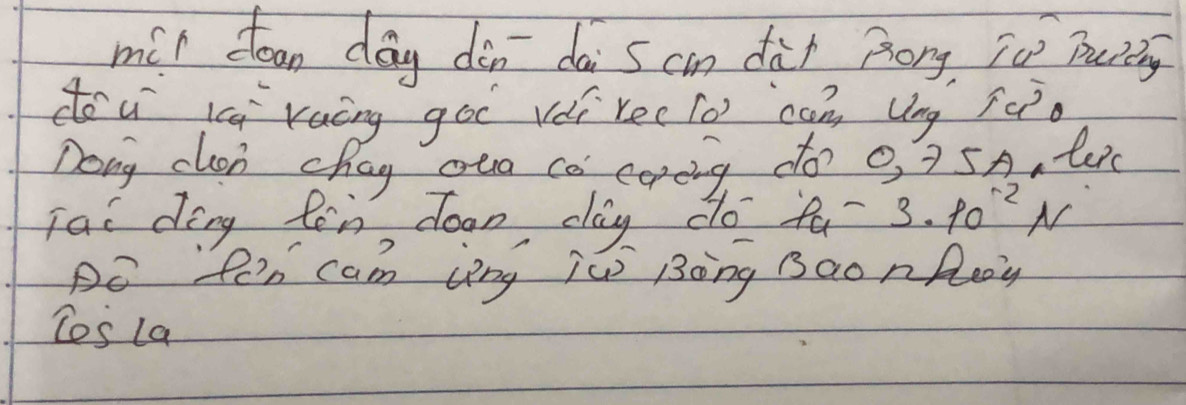 một đoạn dây dẫn dài 5 cm đặt trong từ trường
đều và vuông góc với vectơ cảm ứng từ.
Dòng điện chạy qua có cường độ 0,75A, lực
tác dụng lên đoạn dây đó là 3.10⁻² N
Độ lớn cảm ứng từ Bằng Bao nhiêu
Tesla